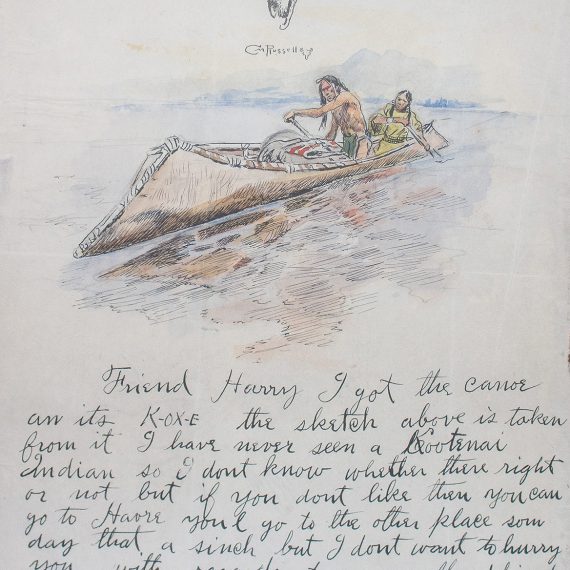 CM Russell
Friend Harry I got the canoe
an its K-OX-E the sketch above is taken
from it I have never seen a Kootenai
Indian so I dont know whether there right
or not but if you dont like them you can
go to Havre youl go to the other place som
day that a sinch but I dont want to hurry
you with